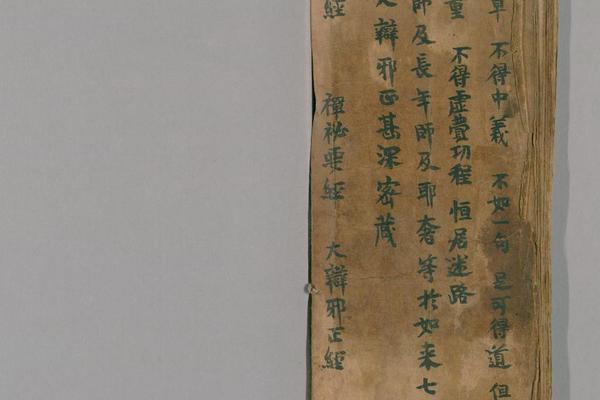 不得中義 不如一句 足可得道 但
重 不得虛費功程 恒居迷路
師及長年師及耶奢等於如来七
辯邪正甚深密藏
經 禪祕要經 大辯邪正經